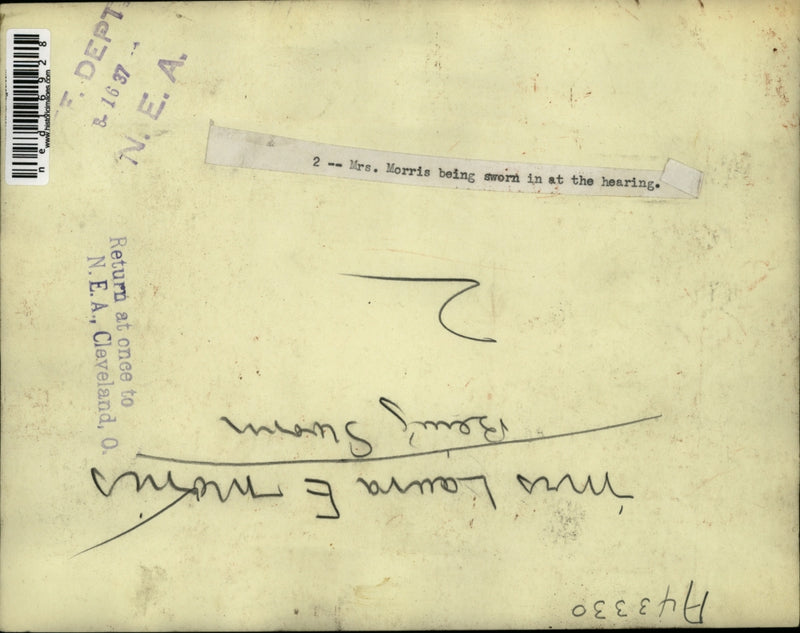 F. DEPT
8 16 37
N. E. A.
ned16928
www.historicimages.com
2 -- Mrs. Morris being sworn in at the hearing.
Return at once to
N. E. A., Cleveland, O.
A43330
Mrs Laura E Morris
Being Sworn
2